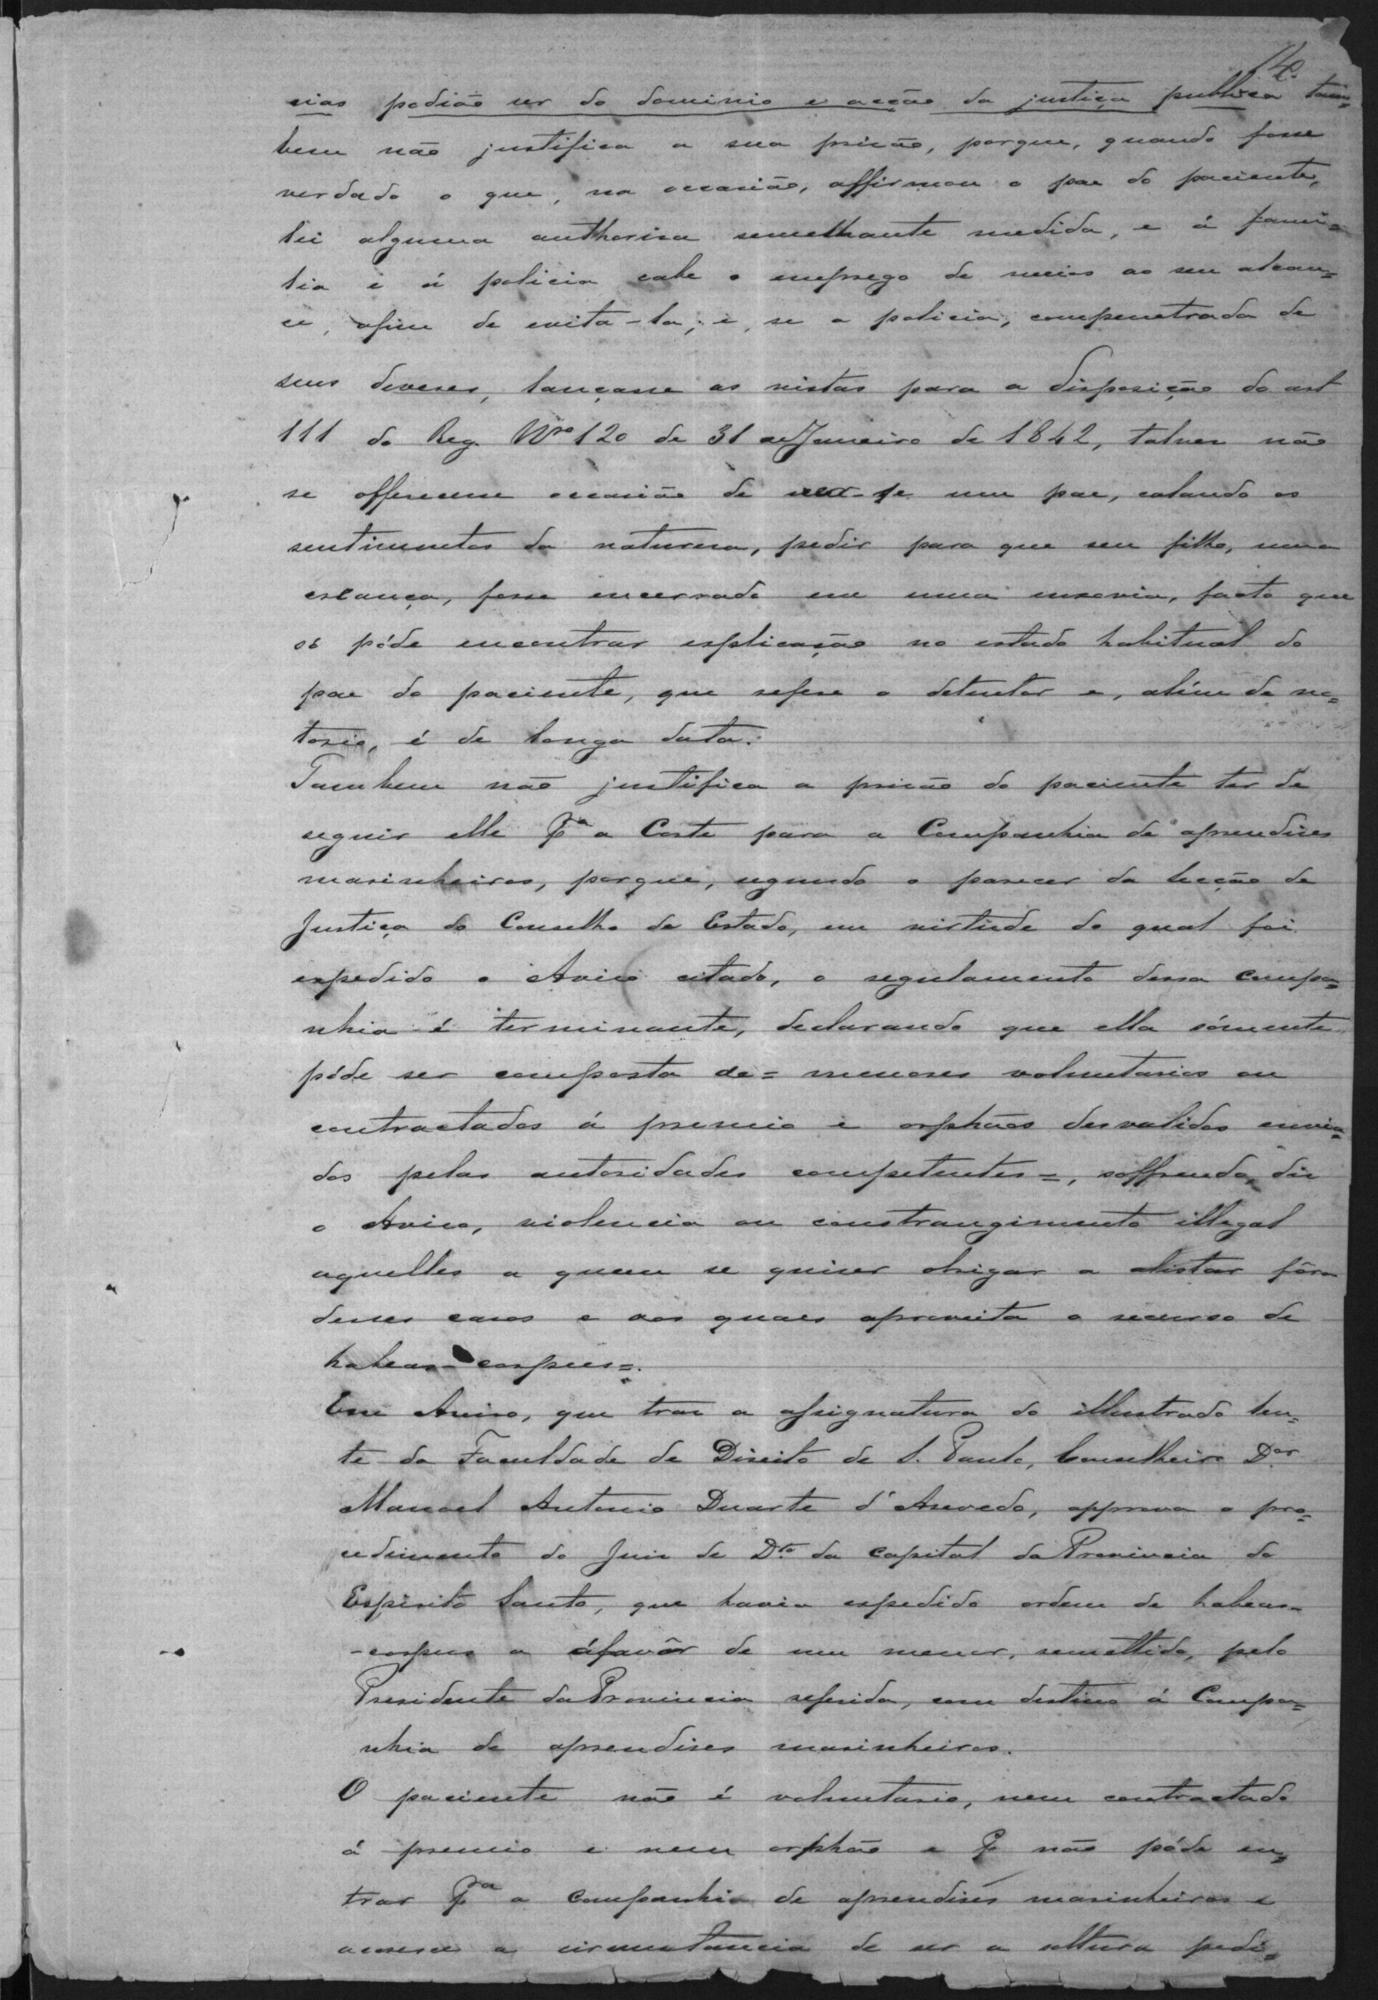 14.
cias podião ser do dominio e acção da justiça publica tam=
bem não justifica a sua prisão, porque, quando fosse
verdade o que, na occasião, affirmou o pae do paciente,
lei alguma authorisa semelhante medida, e á fami=
lia e á policia cabe o emprego de meios ao seu alcan=
ce, afim de evita-la; e, se a policia, compenetrada de
seus deveres, lançasse as vistas para a disposição do art
111 do Reg. Nro 120 de 31 de Janeiro de 1842, talvez não
se offerecesse occasião de ver-se um pae, calando os
sentimentos da naturesa, pedir para que seu filho, uma
creança, fosse encerrado em uma enxovia, facto que
só póde encontrar explicação no estado habitual do
pae do paciente, que refere o detentor e, além de no=
torio, é de longa data.
Tambem não justifica a prisão do paciente ter de
seguir elle Pa a Corte para a Companhia de aprendises
marinheiros, porque, segundo o parecer da Secção de
Justiça do Conselho de Estado, em virtude do qual foi
expedido o Aviso citado, o regulamento dessa compa=
nhia é terminante, declarando que ella sómente
póde ser composta de= menores voluntarios ou
contractados á premio e orphãos desvalidos envia=
dos pelas autoridades competentes=, soffrendo, diz
o Aviso, violencia ou constrangimento illegal
aquelles a quem se quiser obrigar a alistar fóra
desses casos e aos quaes aproveita o recurso de
habeas-corpus=.
Esse Aviso, que traz a assignatura do illustrado len=
te da Faculdade de Direito de S. Paulo, Conselheiro Dor
Manoel Antonio Duarte d'Azevedo, approva o pro=
cedimento do Juiz de Dto da capital da Provincia do
Espirito Santo, que havia expedido ordem de habeas-
-corpus a favôr de um menor, remettido, pelo
Presidente da Provincia referida, com destino á Compa=
nhia de aprendises marinheiros.
O paciente não é voluntario, nem contractado
á premio e nem orphão e P não póde en=
trar Pa a companhia de aprendises marinheiros e
accresce a circunstancia de ser a soltura pedi=